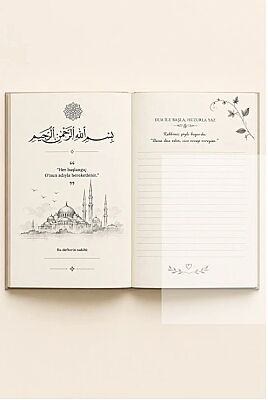 بِسْمِ اللهِ الرَّحْمٰنِ الرَّحِيْمِ
“
"Her başlangıç
O'nun adıyla bereketlenir."
”
Bu defterin sahibi:
DUA İLE BAŞLA, HUZURLA YAZ
Rabbimiz şöyle buyurdu:
"Bana dua edin, size cevap vereyim."